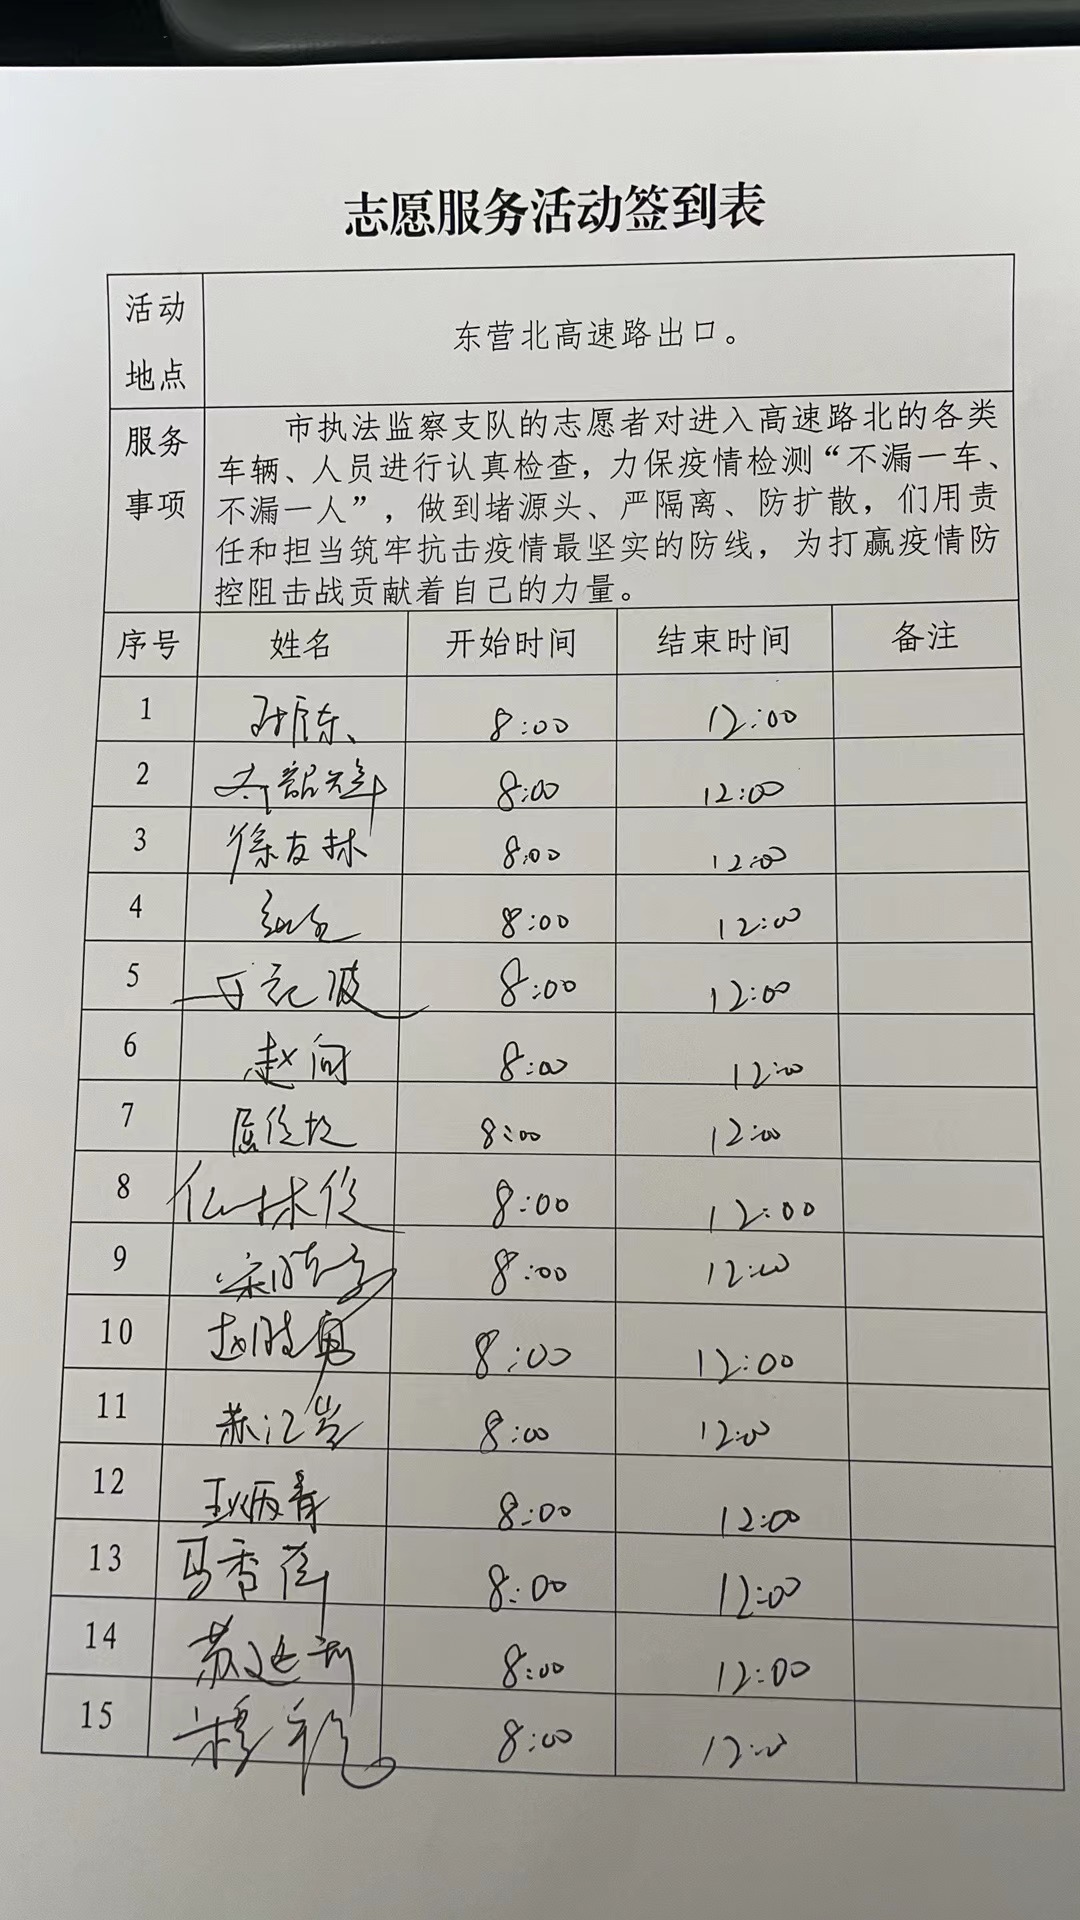 志愿服务活动签到表
活动
地点
东营北高速路出口。
服务
事项
市执法监察支队的志愿者对进入高速路北的各类
车辆、人员进行认真检查，力保疫情检测“不漏一车、
不漏一人”，做到堵源头、严隔离、防扩散，们用责
任和担当筑牢抗击疫情最坚实的防线，为打赢疫情防
控阻击战贡献着自己的力量。
序号 姓名 开始时间 结束时间 备注
1 8:00 12:00
2 8:00 12:00
3 徐友林 8:00 12:00
4 8:00 12:00
5 8:00 12:00
6 赵向 8:00 12:00
7 8:00 12:00
8 8:00 12:00
9 8:00 12:00
10 8:00 12:00
11 8:00 12:00
12 王炳春 8:00 12:00
13 马香莲 8:00 12:00
14 苏延利 8:00 12:00
15 8:00 12:00